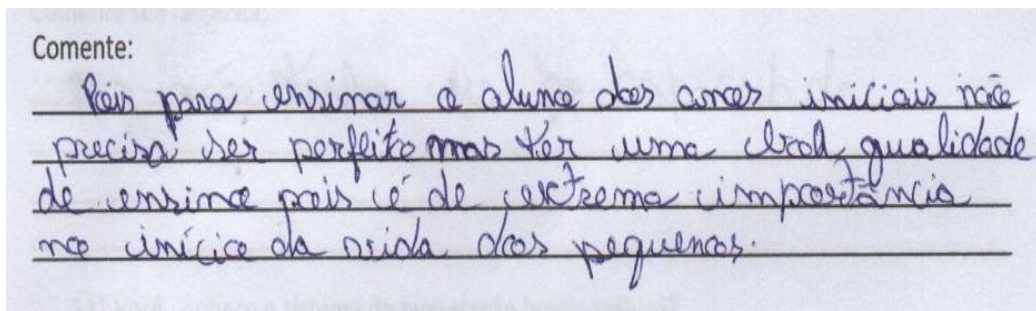 Comente:
Pois para ensinar o aluno dos anos iniciais não
precisa ser perfeito mas ter uma boa qualidade
de ensino pois é de extrema importância
no início da vida dos pequenos.